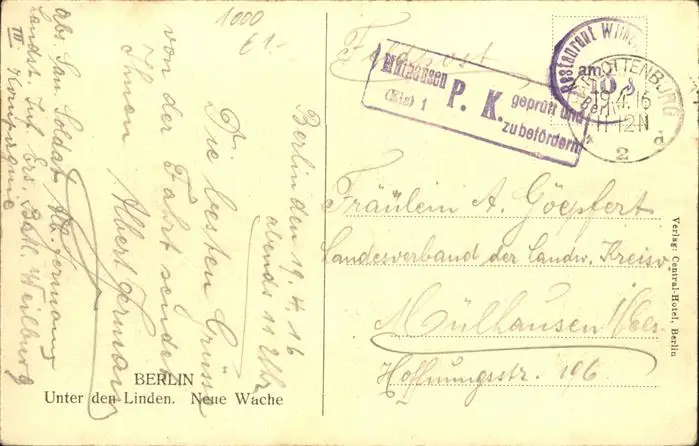 1000
£1.-
Berlin den 19.4.16
abends 11 Uhr
Die besten Grüsse
von der Fahrt sendet
Ihnen Albert Germann
Abs. San. Soldat Alb. Germann
Landst. Inf. Ers. Batl. Weilburg
III Kompagnie
BERLIN
Unter den Linden. Neue Wache
Feldpost
Mülhausen
(Els) 1
P. K.
geprüft und
zu befördern
Restaurant Wilhe
am
10
Berlin
CHARLOTTENBURG
4.16
11-12N
2 d
Fräulein A. Göepfert
Landesverband der Landw. Kreisv.
Mülhausen i/Els.
Hoffnungsstr. 196
Verlag: Central-Hotel, Berlin